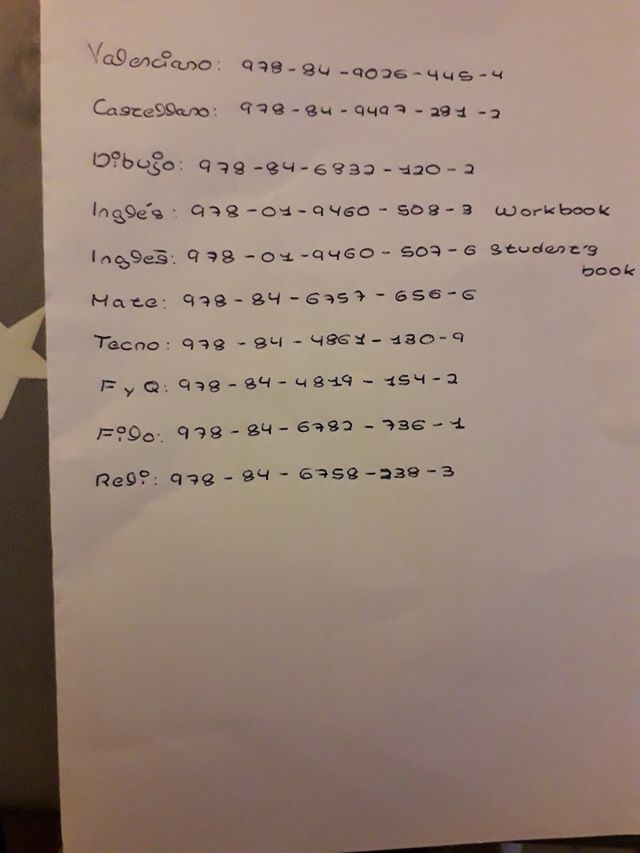 Valenciano: 978-84-9026-445-4
Castellano: 978-84-9497-281-2
Dibujo: 978-84-6832-120-2
Inglés: 978-01-9460-508-3 Workbook
Inglés: 978-01-9460-507-6 Student's
book
Mate: 978-84-6757-656-6
Tecno: 978-84-4861-130-9
F y Q: 978-84-4819-154-2
Filo: 978-84-6782-736-1
Reli: 978-84-6758-238-3